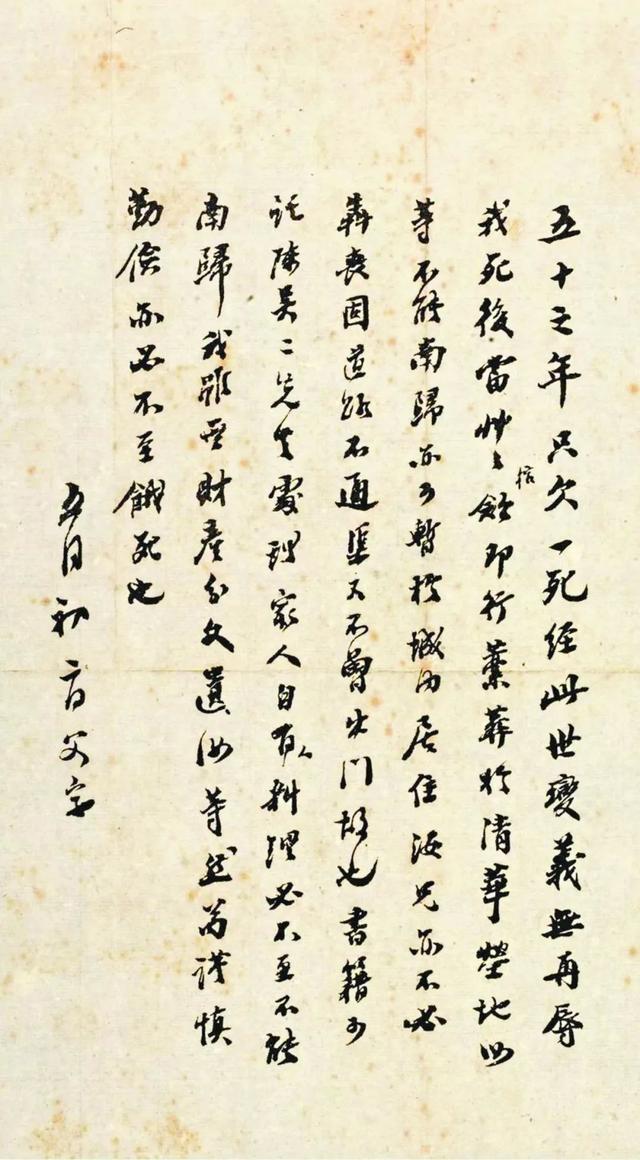 五十之年只欠一死經此世變義無再辱
我死後當艸艸棺斂即行藁葬於清華塋地汝
等不能南歸亦可暫於城內居住汝兄亦不必
奔喪因道路不通渠又不曾出門故也書籍可
託陳吳二先生處理家人自有人料理必不至不能
南歸我雖無財產分文遺汝等然苟謹慎
勤儉亦必不至餓死也
五月初二日父字